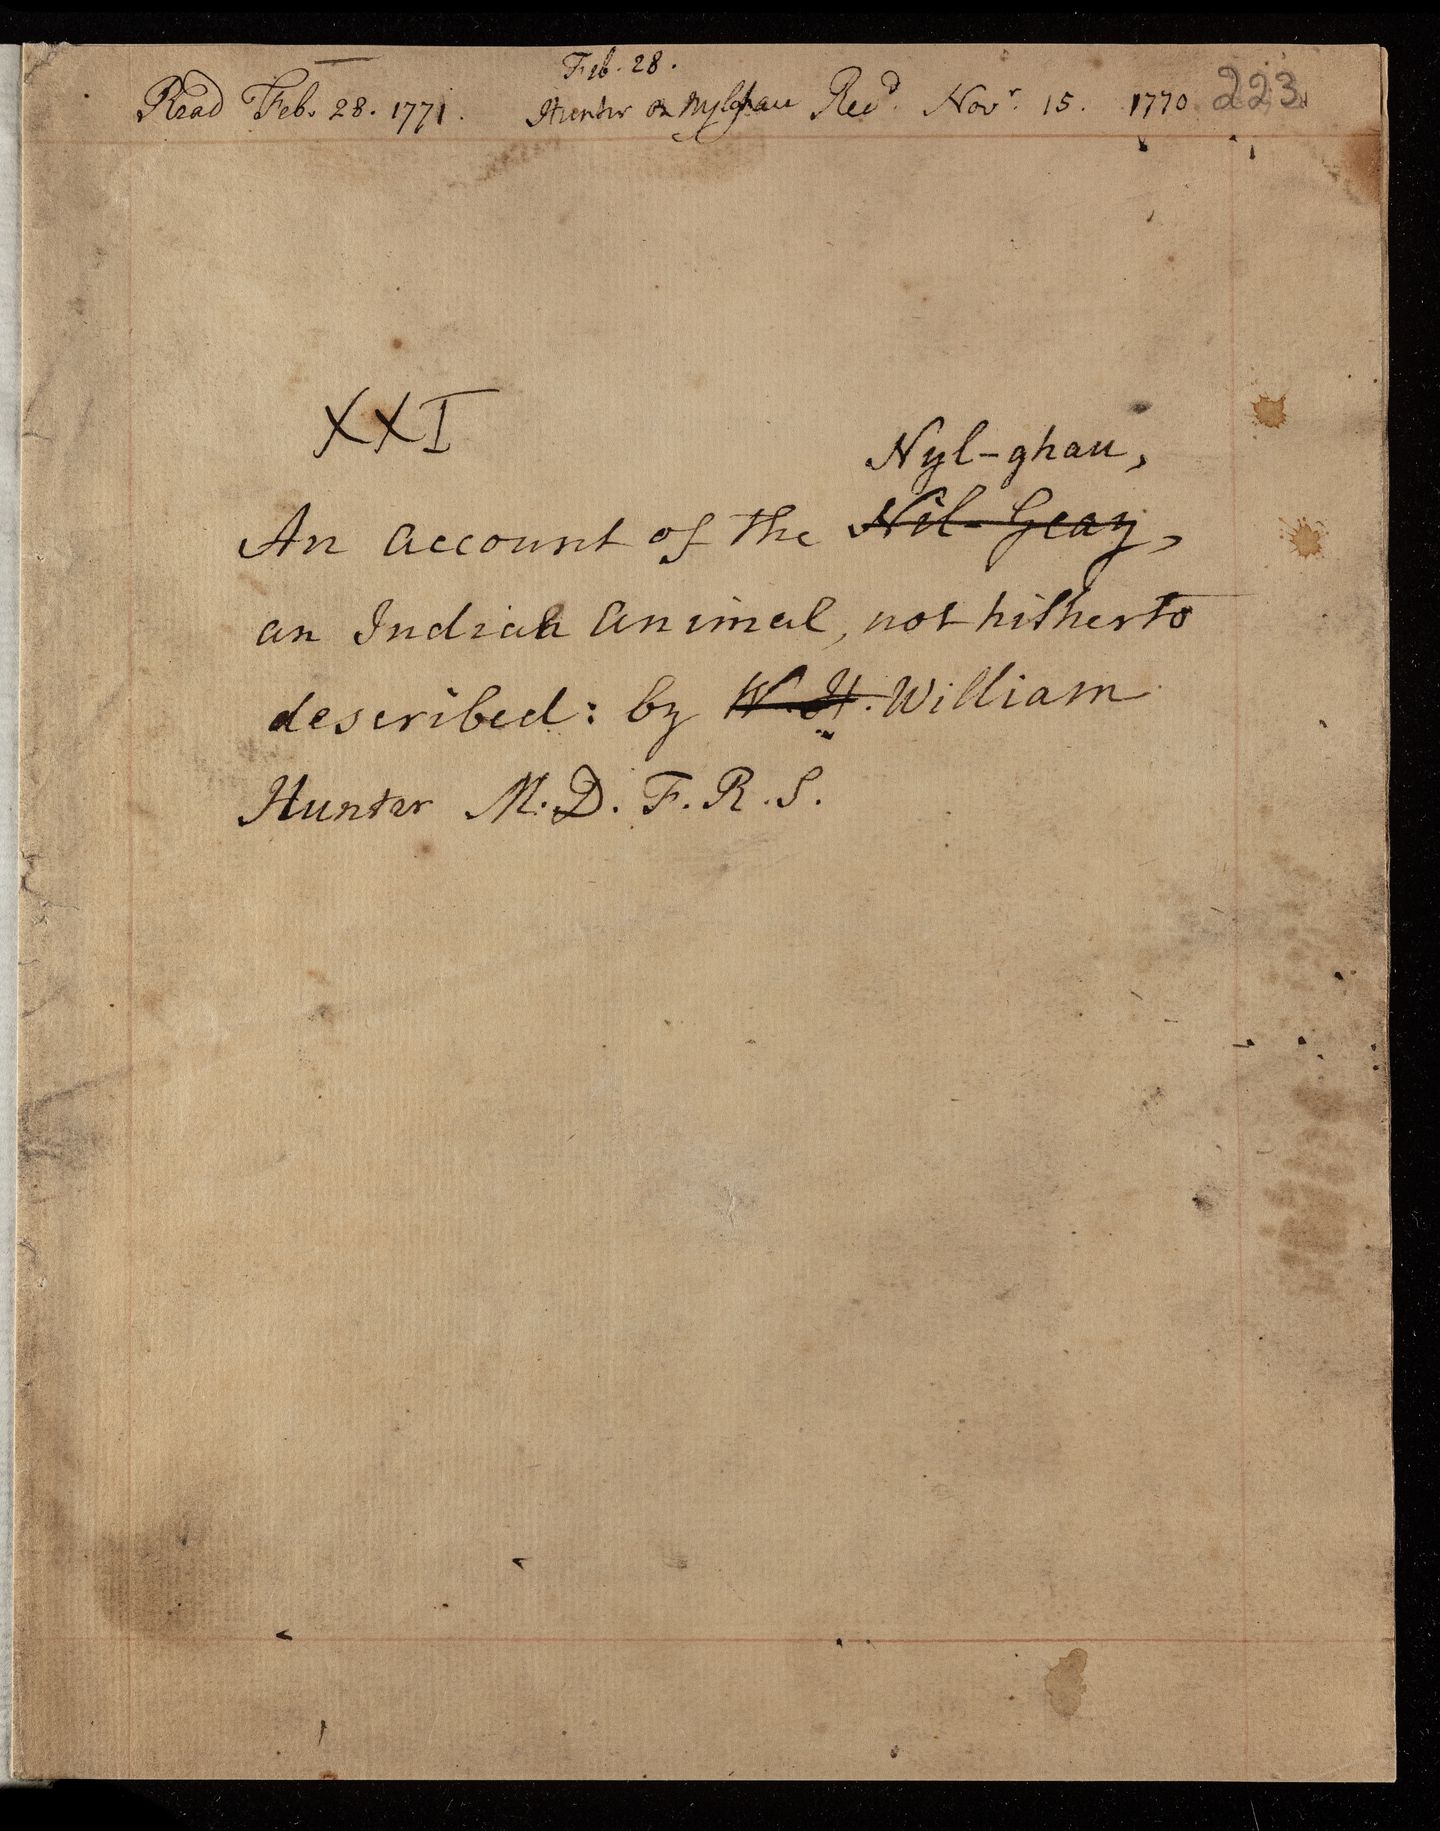 Feb. 28.
Read Feb. 28. 1771. Hunter on Nylghau Recd. Novr. 15. 1770 223
XXI
Nyl-ghau,
An Account of the Nil-Geay,
an Indian Animal, not hitherto
described: by W. H. William
Hunter M.D. F.R.S.